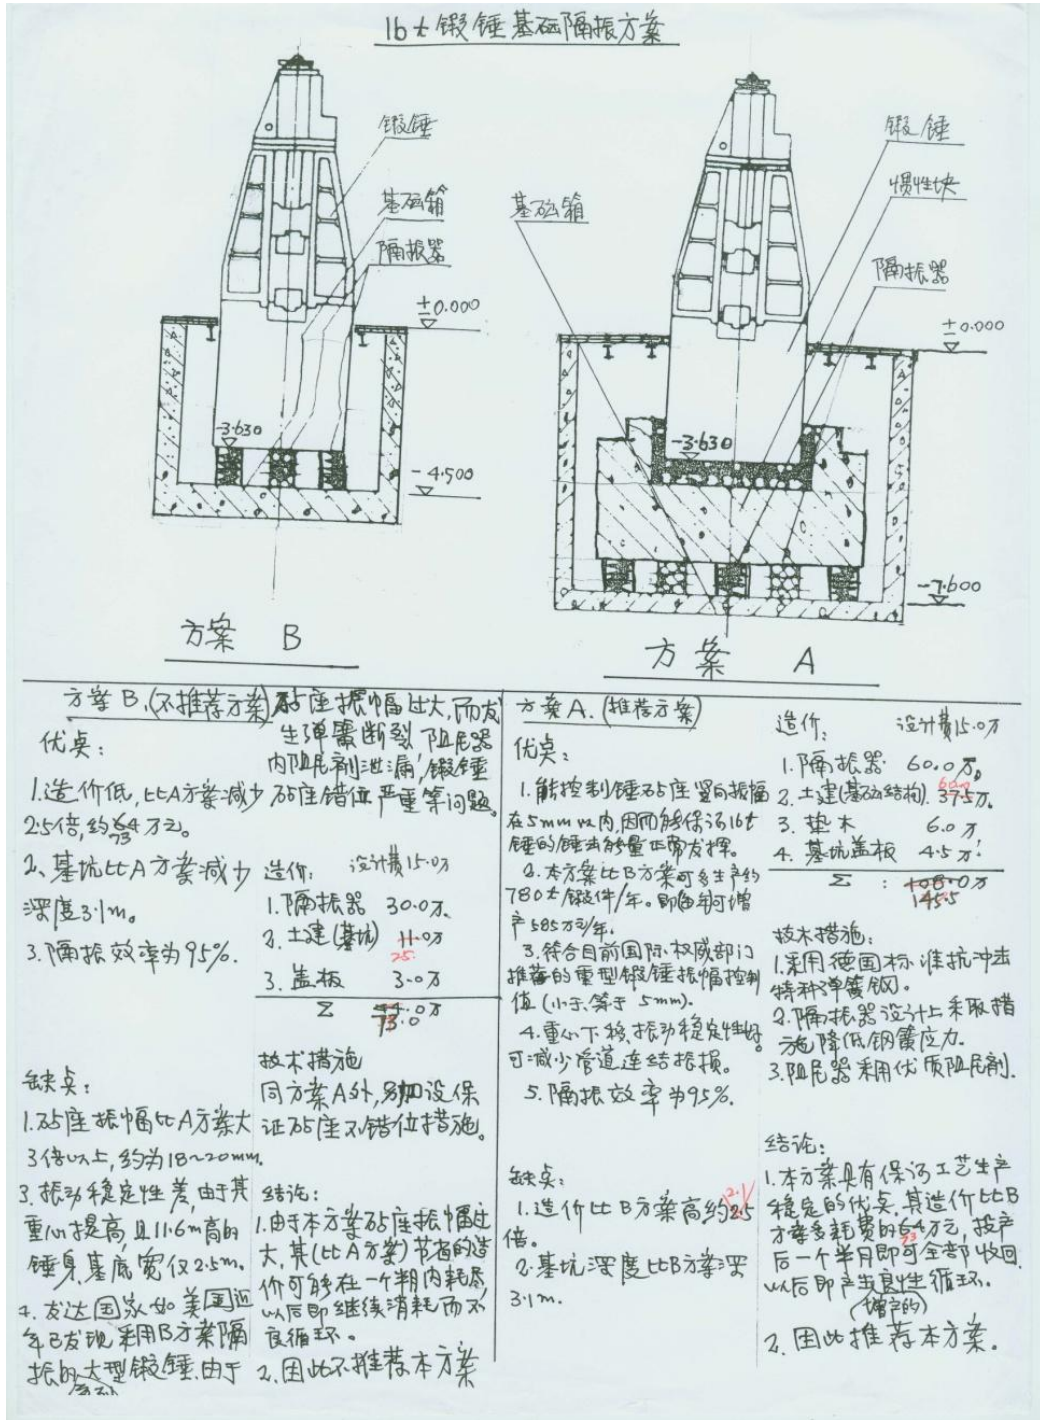 16t锻锤基础隔振方案
锻锤
基础箱
隔振器
±0.000
-3.630
-4.500
方案 B
锻锤
惯性块
基础箱
隔振器
±0.000
-3.630
-7.600
方案 A
方案B.(不推荐方案)
优点:
1.造价低,比A方案减少
2.5倍,约73万元。
2、基坑比A方案减少
深度3.1m。
3.隔振效率为95%.
缺点:
1.砧座振幅比A方案大
3倍以上,约为18~20mm.
3.振动稳定性差,由于其
重心提高,且11.6m高的
锤身,基底宽仅2.5m。
4.发达国家如美国近
年已发现采用B方案隔
振的大型锻锤,由于
砧座振幅过大,而发
生弹簧断裂,阻尼器
内阻尼剂泄漏,锻锤
砧座错位严重等问题。
造价: 设计费15.0万
1.隔振器 30.0万.
2.土建(基坑) 11.0万
25.
3.盖板 3.0万
Σ 73.0
技术措施
同方案A外,另加设保
证砧座不错位措施。
结论:
1.由于本方案砧座振幅过
大,其(比A方案)节省的造
价可能在一个半月内耗尽,
以后即继续消耗而不
良循环。
2.因此不推荐本方案
方案A.(推荐方案)
优点:
1.能控制锤砧座竖向振幅
在5mm以内,因而能保证16t
锤的锤击能量正常发挥。
2.本方案比B方案可多生产约
780t锻件/年。即每年可增
产585万元/年.
3.符合目前国际权威部门
推荐的重型锻锤振幅控制
值(小于、等于5mm).
4.重心下移,振动稳定性好。
可减少管道连结振损。
5.隔振效率为95%.
缺点:
1.造价比B方案高约2.5
2.1
倍。
2.基坑深度比B方案深
3.1m.
造价: 设计费15.0万
1.隔振器 60.0万。
60.0
2.土建(基础结构). 37.5万.
3.垫木 6.0万
4.基坑盖板 4.5万!
Σ: 108.0万
145.5
技术措施:
1.采用德国标准抗冲击
特种弹簧钢。
2.隔振器设计上采取措
施降低钢簧应力.
3.阻尼器采用优质阻尼剂.
结论:
1.本方案具有保证工艺生产
稳定的优点.其造价比B
方案多耗费的64万元,投产
73
后一个半月即可全部收回.
以后即产生良性循环.
(增产的)
2.因此推荐本方案。